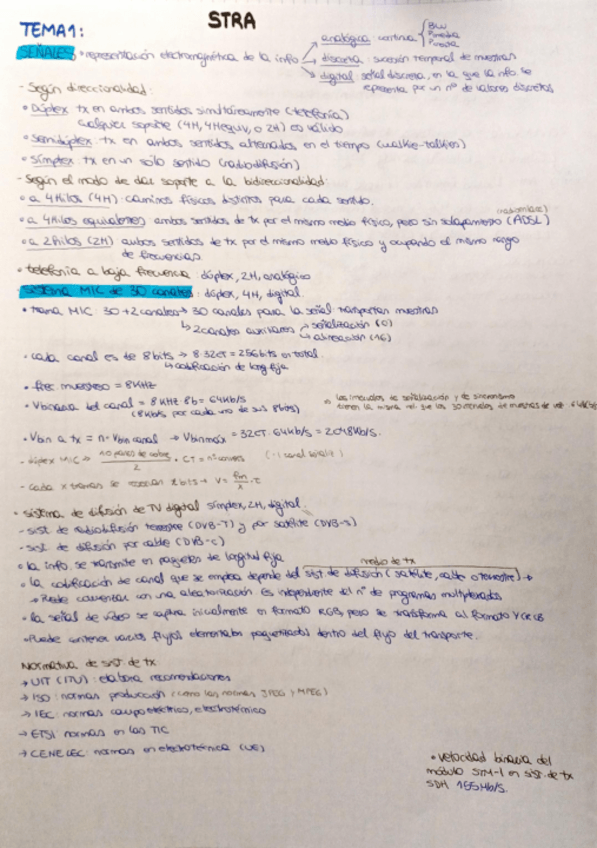 STRA
TEMA 1:
SEÑALES • representación electromagnética de la info
→ analógica: continua { BW Pmedia
→ discreta: sucesión temporal de muestras
→ digital: señal discreta, en la que la info. se
representa por un nº de valores discretos
- Según direccionalidad:
• Dúplex: tx en ambos sentidos simultáneamente (telefonía)
cualquier soporte (4H, 4Hequiv, o 2H) es válido
• Semidúplex: tx en ambos sentidos alternados en el tiempo (walkie-talkies)
• Símplex: tx en un sólo sentido (radiodifusión)
- Según el modo de dar soporte a la bidireccionalidad:
• a 4 Hilos (4H): caminos físicos distintos para cada sentido.
• a 4 Hilos equivalentes: ambos sentidos de tx por el mismo medio físico, pero sin solapamiento (ADSL)
• a 2 hilos (2H) ambos sentidos de tx por el mismo medio físico y ocupando el mismo rango
de frecuencias.
• telefonía a baja frecuencia: dúplex, 2H, analógico
- SISTEMA MIC de 30 canales: dúplex, 4H, digital.
• trama MIC 30+2 canales → 30 canales para la señal transportan muestras
↳ 2 canales auxiliares → señalización (0)
→ alineación (16)
• cada canal es de 8 bits → 8·32CT = 256 bits en total.
↳ codificación de long fija
• frec muestreo = 8KHz
• Vbinaria del canal = 8 KHz · 8b = 64Kb/s
(8Kb/s por cada uno de sus 8bits)
⇒ los intervalos de señalización y de sincronismo
tienen la misma vel. que los 30 intervalos de muestras de voz
• Vbin a tx = n · Vbin canal → Vbin max = 32CT · 64Kb/s = 2048Kb/s.
- dúplex MIC → nº pares de cobre / 2 · CT = nº canales
- cada x tramas se
• sistema de difusión de TV digital símplex, 2H, digital.
- sist de radiodifusión terrestre (DVB-T) y por satélite (DVB-S)
- sist de difusión por cable (DVB-C)
• la info. se transmite en paquetes de longitud fija
medio de tx
• la codificación de canal que se emplea depende del sist de difusión (satélite, cable o terrestre) →
→ Puede comenzar con una aleatorización. Es independiente del nº de programas multiplexados
• la señal de vídeo se capta inicialmente en formato RGB, pero se transforma al formato YCrCb
• Puede contener varios flujos elementales paquetizados dentro del flujo del transporte.
Normativa de sist de tx
→ UIT (ITU): elabora recomendaciones
→ ISO: normas producción (como las normas JPEG y MPEG)
→ IEC: normas campo eléctrico, electrotécnico
→ ETSI: normas en las TIC
→ CENELEC: normas en electrotécnica (UE)
• velocidad binaria del
módulo STM-1 en sist. de tx
SDH 155Mb/s.